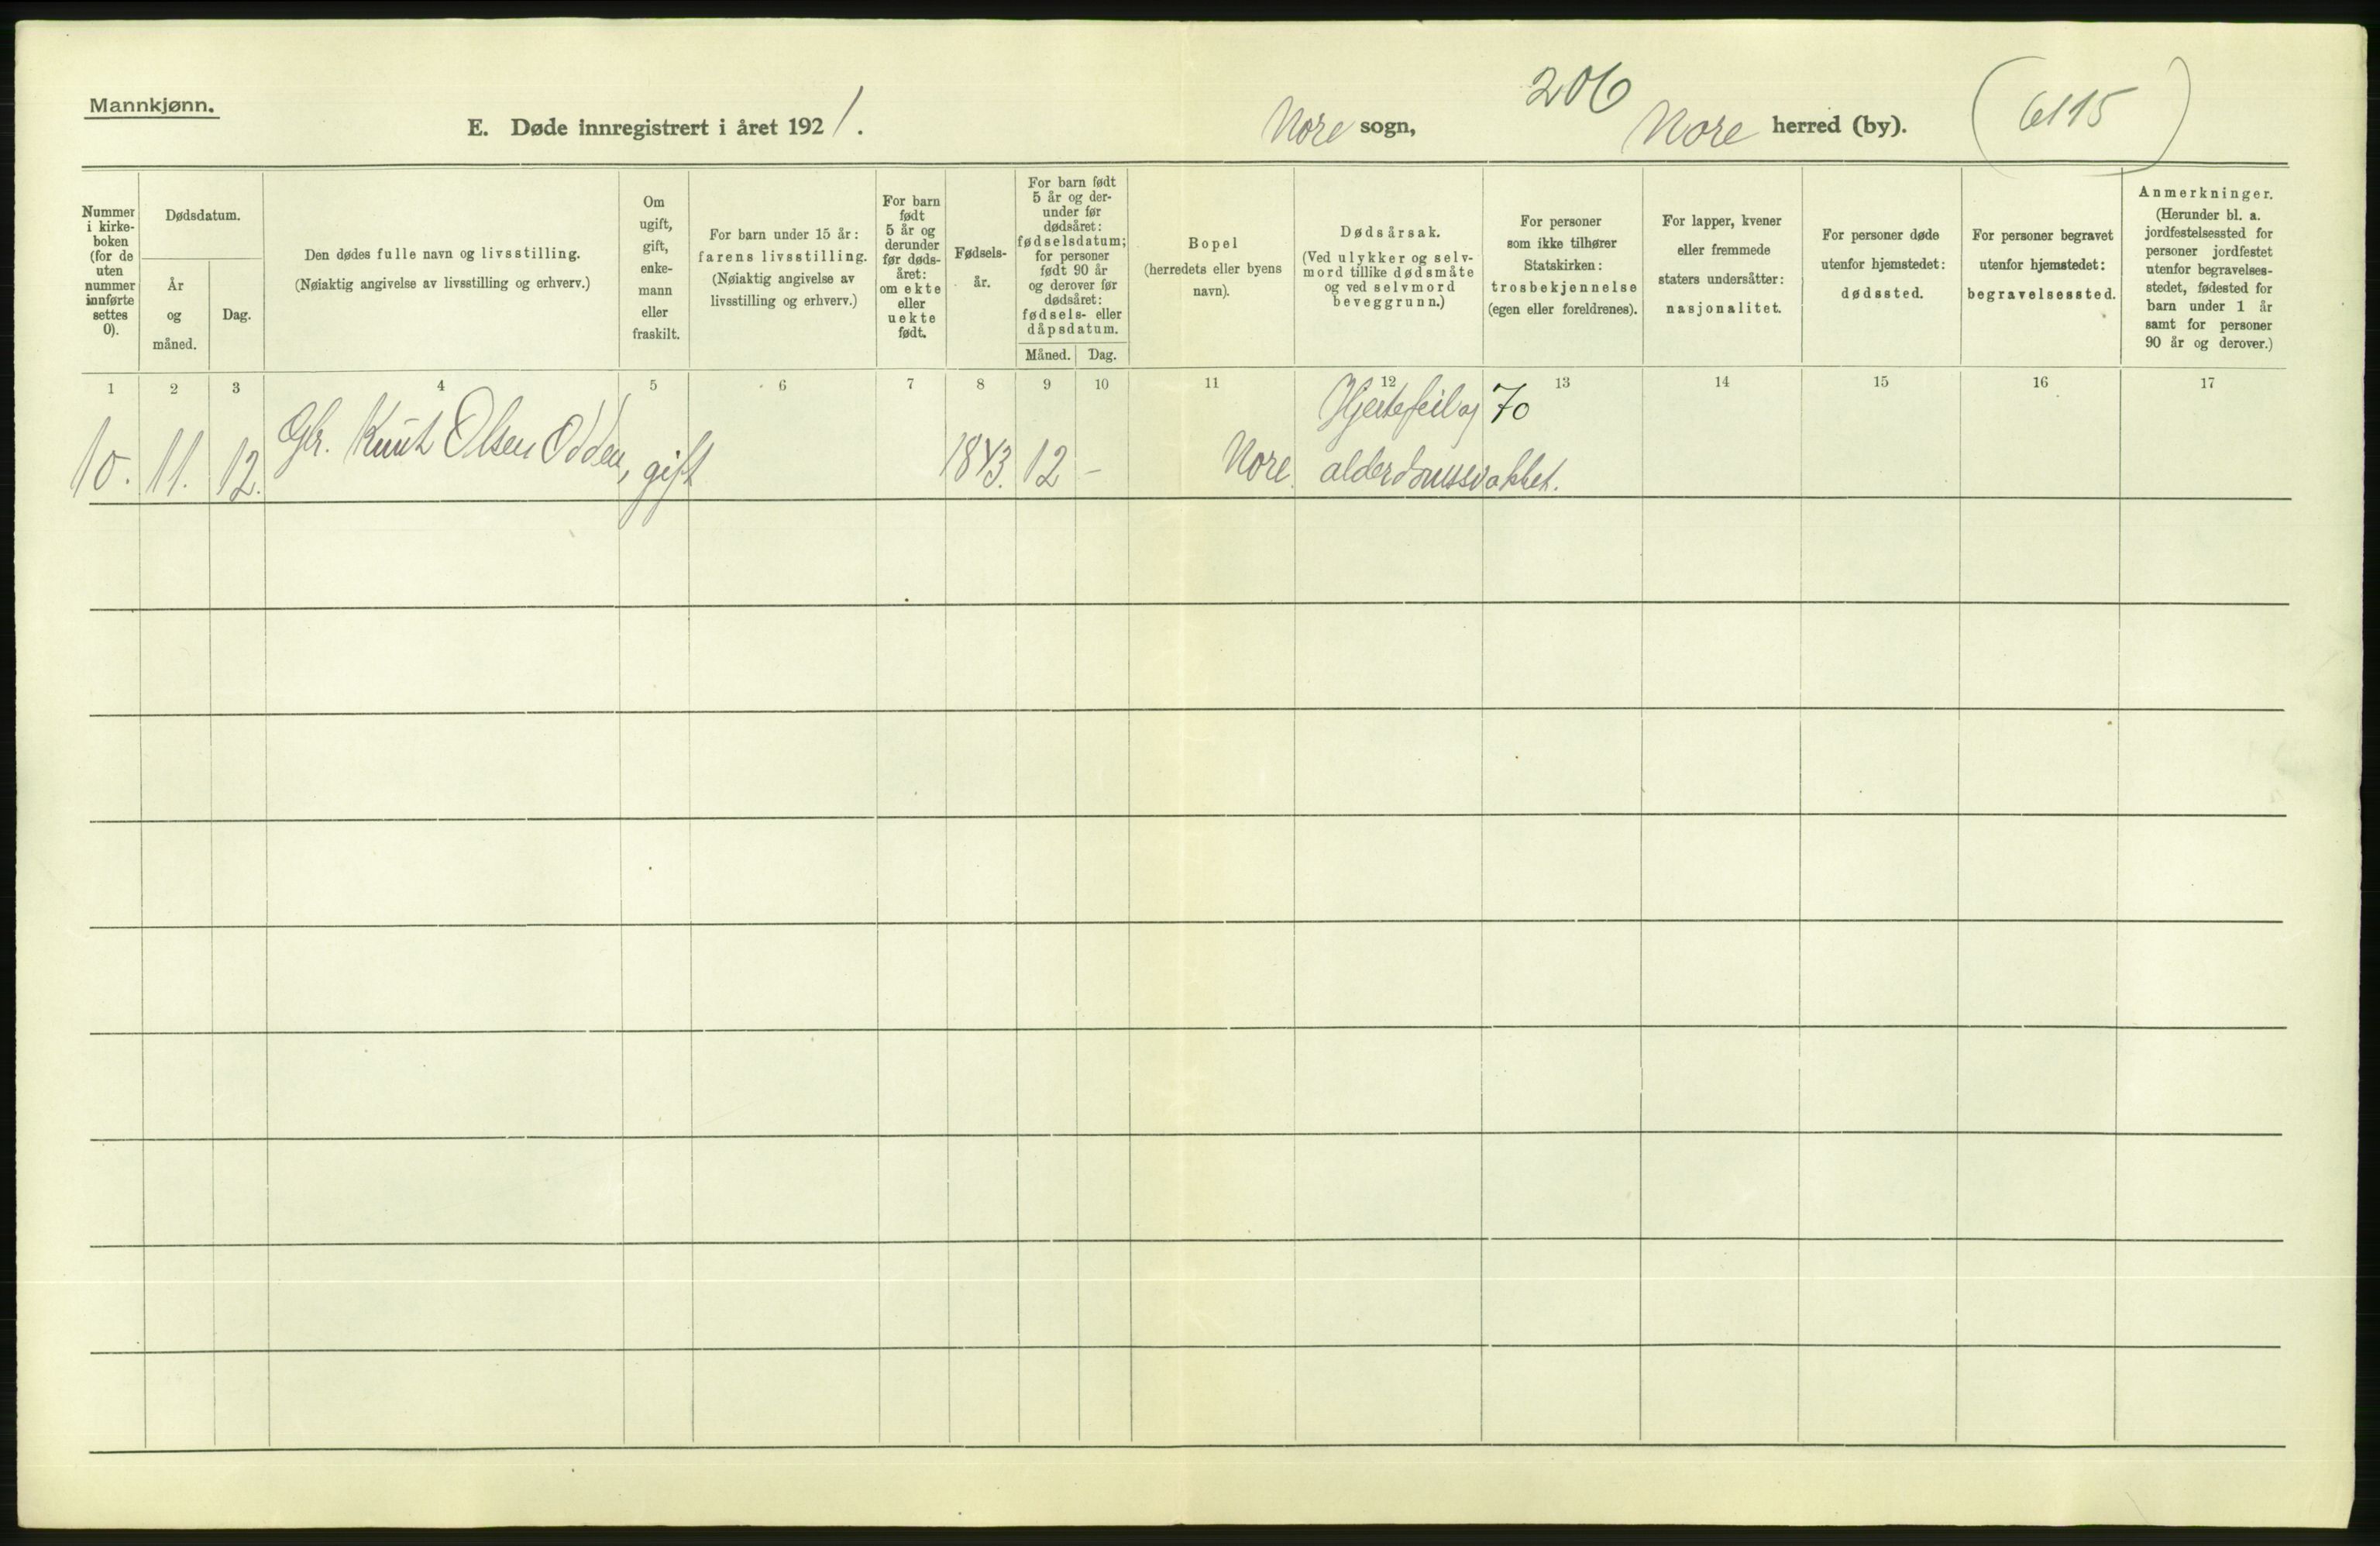 Mannkjønn.
206
E. Døde innregistrert i året 1921.
Nore sogn,
Nore herred (by).
(6115)
Nummer
i kirke-
boken
(for de
uten
nummer
innførte
settes
0).
Dødsdatum.
År
og
måned.
Dag.
Den dødes fulle navn og livsstilling.
(Nøiaktig angivelse av livsstilling og erhverv.)
Om
ugift,
gift,
enke-
mann
eller
fraskilt.
For barn under 15 år:
farens livsstilling.
(Nøiaktig angivelse av
livsstilling og erhverv.)
For barn
født
5 år og
derunder
før døds-
året:
om ekte
eller
uekte
født.
Fødsels-
år.
For barn født
5 år og der-
under før
dødsåret:
fødselsdatum;
for personer
født 90 år
og derover før
dødsåret:
fødsels- eller
dåpsdatum.
Måned. Dag.
Bopel
(herredets eller byens
navn).
Dødsårsak.
(Ved ulykker og selv-
mord tillike dødsmåte
og ved selvmord
beveggrunn.)
For personer
som ikke tilhører
Statskirken:
trosbekjennelse
(egen eller foreldrenes).
For lapper, kvener
eller fremmede
staters undersåtter:
nasjonalitet.
For personer døde
utenfor hjemstedet:
dødssted.
For personer begravet
utenfor hjemstedet:
begravelsessted.
Anmerkninger.
(Herunder bl. a.
jordfestelsessted for
personer jordfestet
utenfor begravelses-
stedet, fødested for
barn under 1 år
samt for personer
90 år og derover.)
1 2 3 4 5 6 7 8 9 10 11 12 13 14 15 16 17
Hjertefeil og 70
10. 11. 12. Gbr. Knut Olsen Odden, gift 1843. 12 - Nore. alderdomssvakhet.